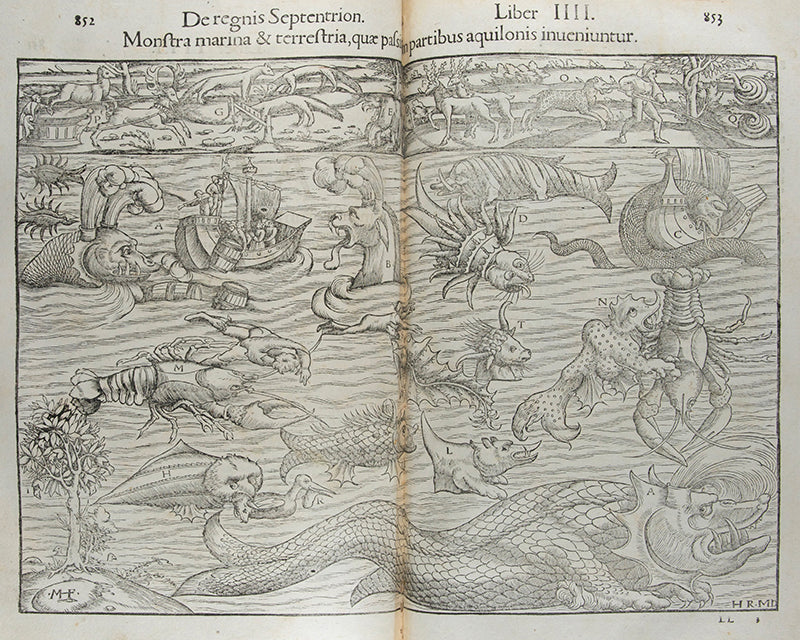 852 De regnis Septentrion. Liber IIII. 853
Monſtra marina & terreſtria, quæ paſſim in partibus aquilonis inueniuntur.
G
O
A
B
D
C
N
T
M
H
L
K
A
M·F·
H R·MD
LL 3